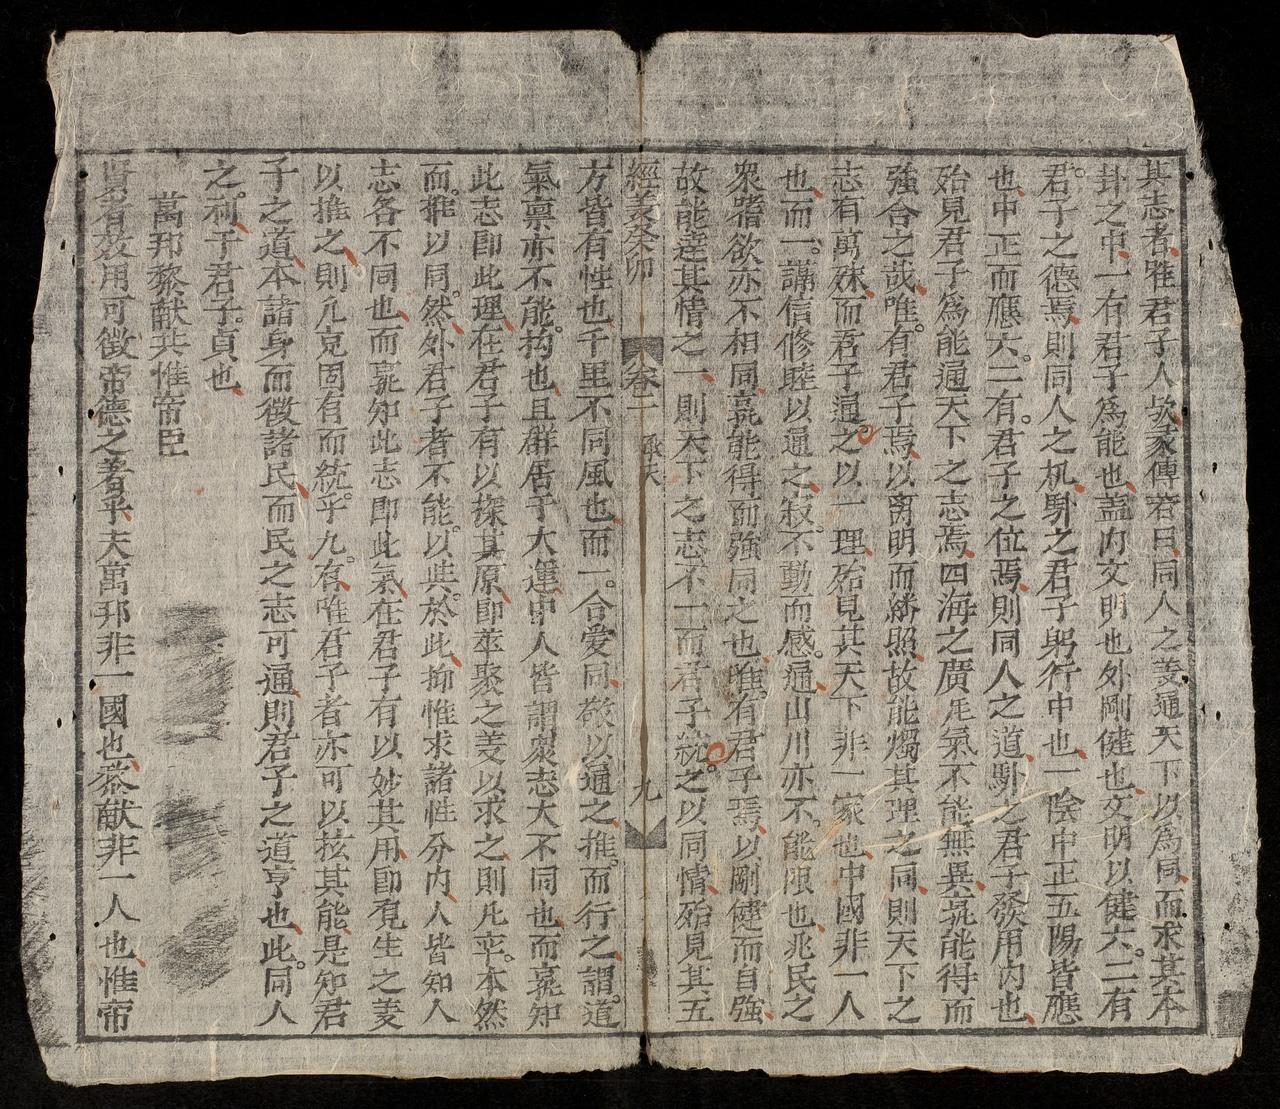 其志者唯君子人歟彖傳若曰同人之義通天下以為同而求其本
卦之中一有君子為能也蓋内文明也外剛健也文明以健六二有
君子之德焉則同人之机馴之君子躬行中也一陰中正五陽皆應
也中正而應六二有君子之位焉則同人之道馴之君子發用内也
殆見君子為能通天下之志焉四海之廣𠃔氣不能無異孰能得而
強合之哉唯有君子焉以离明而繼照故能燭其理之同則天下之
志有萬殊而君子通之以一理殆見其天下非一家也中國非一人
也而一講信修睦以通之寂不動而感通山川亦不能限也兆民之
衆嗜欲亦不相同孰能得而強同之也唯有君子焉以剛健而自強
故能達其情之一則天下之志不一而君子統之以同情殆見其五
經義癸卯 卷二 承天 九
方皆有性也千里不同風也而一合愛同敬以通之推而行之謂道
氣禀亦不能拘也且群居于大運中人皆謂衆志大不同也而孰知
此志即此理在君子有以探其原即萃聚之義以求之則凡卒本然
而推以同然外君子者不能以此於此抑惟求諸性分内人皆知人
志各不同也而孰知此志即此氣在君子有以妙其用即有生之義
以推之則凡克固有而統乎九有唯君子者亦可以核其能是知君
子之道本諸身而徵諸民而民之志可通則君子之道亨也此同人
之利于君子貞也
萬邦黎献共惟帝臣
賢者效用可徵帝德之著乎夫萬邦非一國也黎献非一人也惟帝